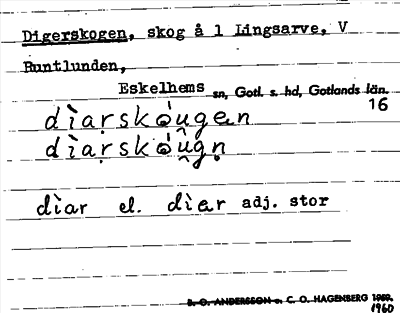 Digerskogen, skog å 1 Lingsarve, V
Runtlunden,
Eskelhems sn, Gotl. s. hd, Gotlands län.
16
dìarskòu̯gen
dìaṛskòu̯gṇ
dìar el. dìer adj. stor
B. O. ANDERSSON o. C. O. HAGENBERG 1959.
1960